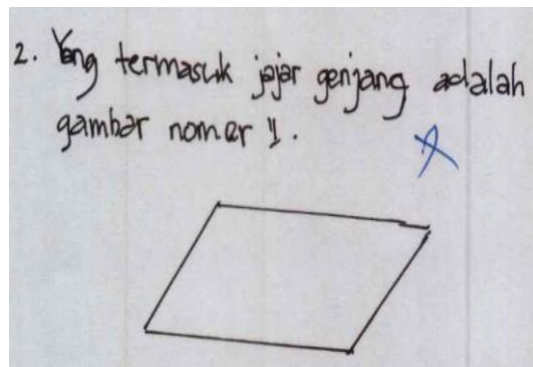 2. Yang termasuk jajar genjang adalah
gambar nomer 1.